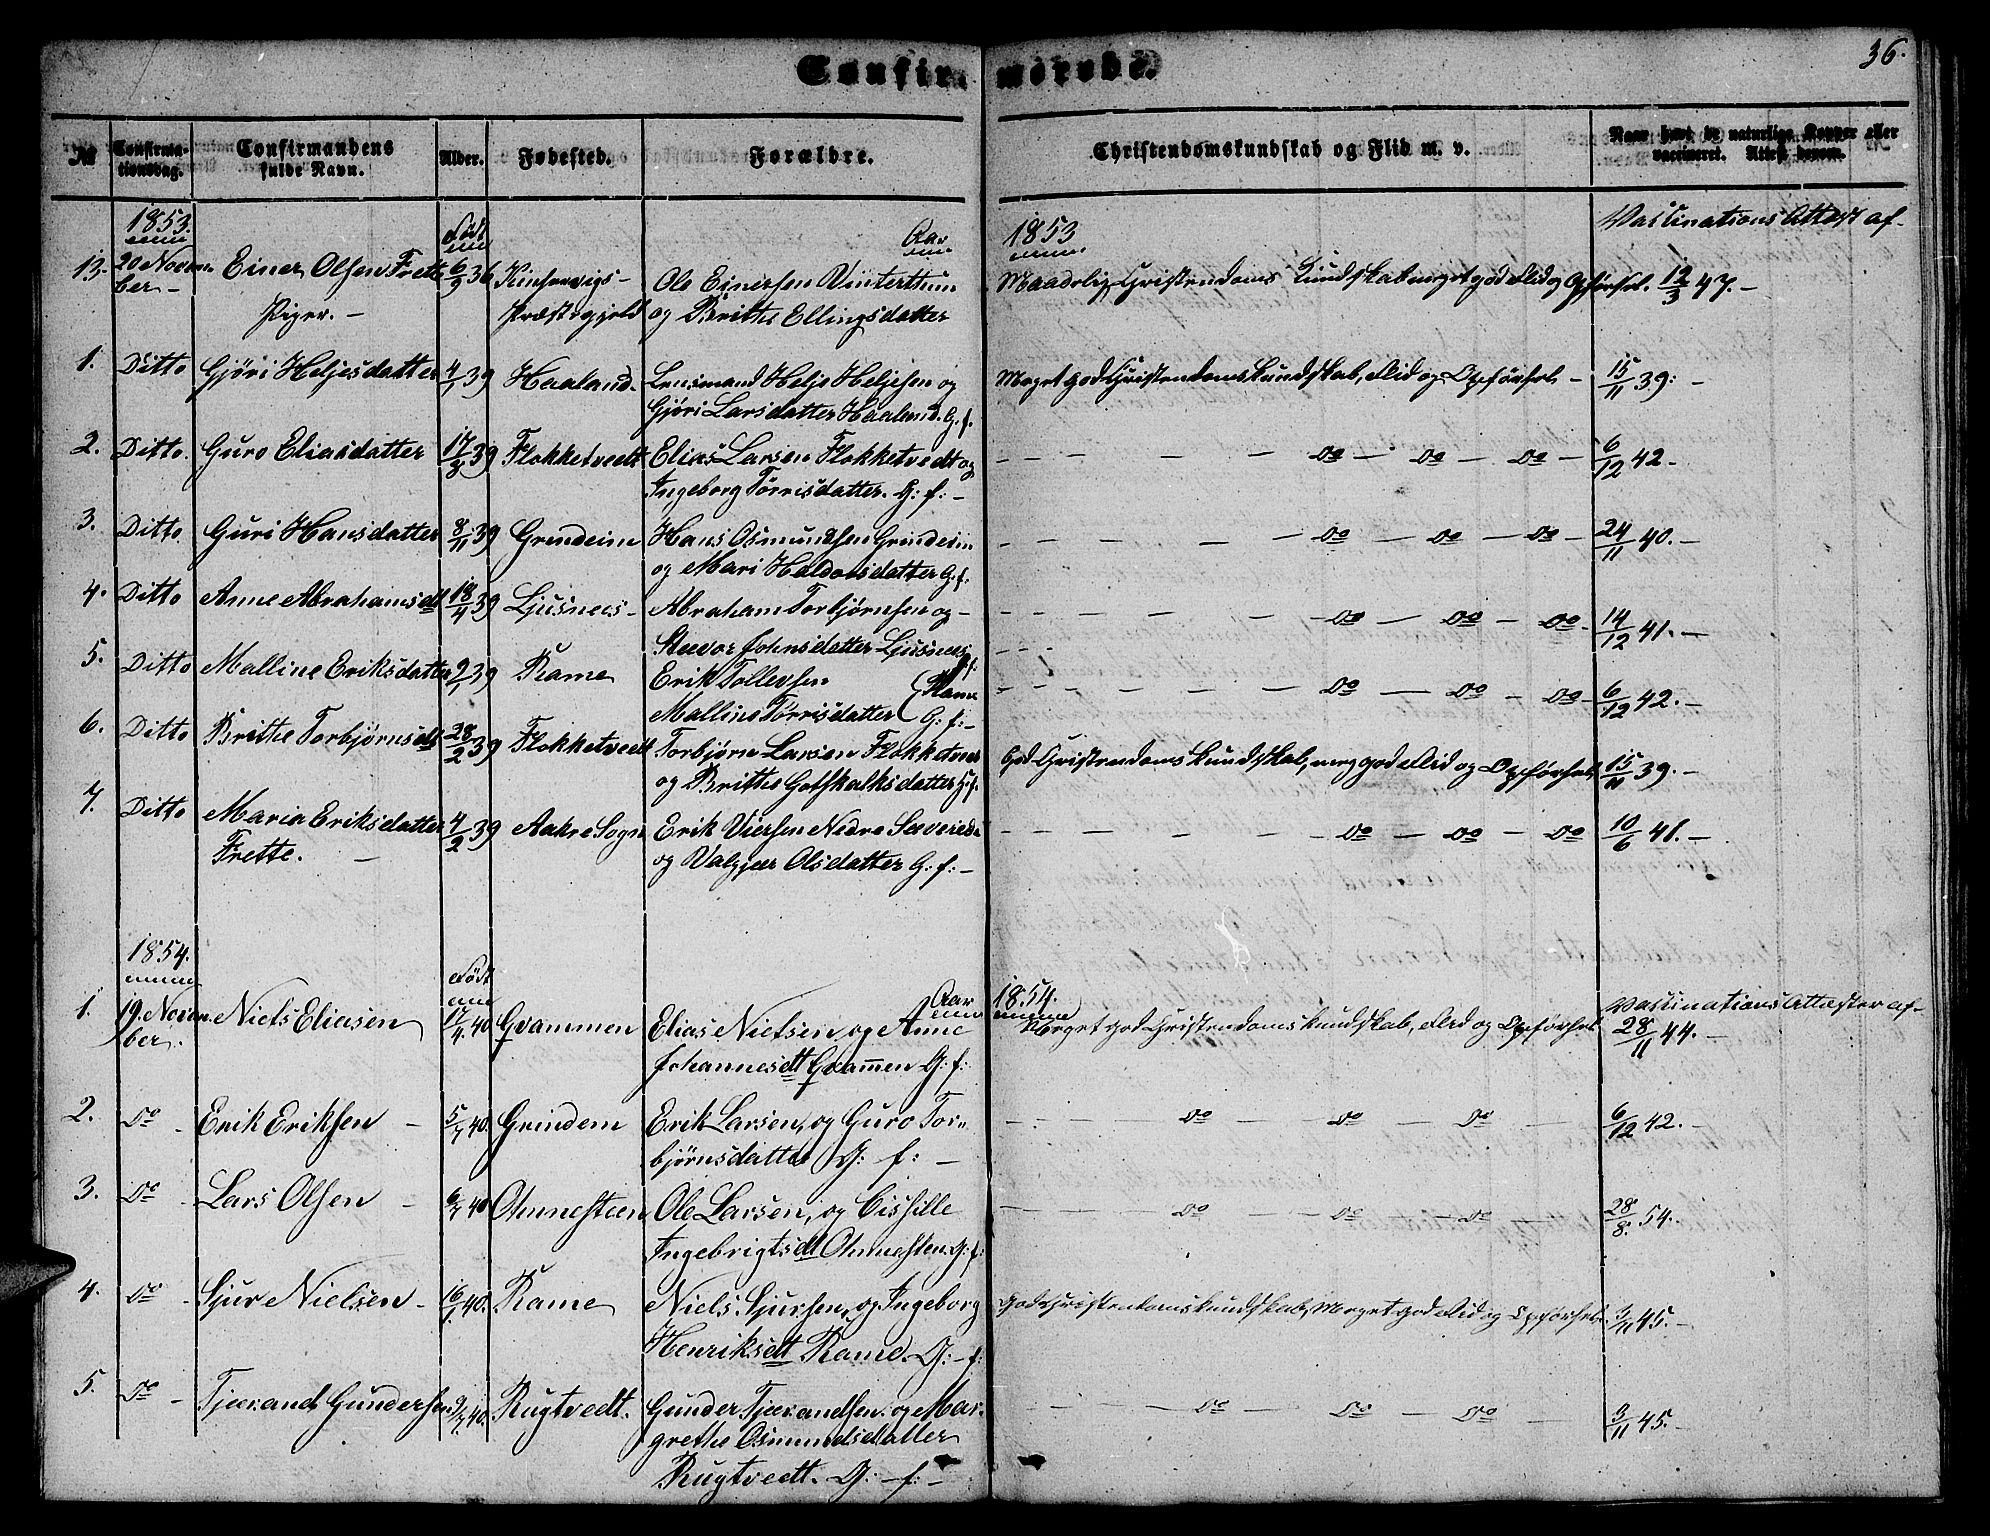 36.
Confir- merede.
№ Confirma-tionsdag. Confirmandens fulde Navn. Alder. Fødested. Forældre. Christendomskundskab og Flid m. v. Naar havt de naturlige Kopper eller vaccineret. Attest derom.
1853. Født Aar 1853 Vaccinations Attest af
13. 20 Novem- Einer Olsen Frette 6/9 36 Kinservigs- Ole Einersen Vinterthun Maadelig Christendoms Kundskab meget god Flid og Opførsel. 12/3 47.-
ber- Præstegjeld og Brithe Ellingsdatter
Piger. -
1. Ditto Gjøri Heljesdatter 4/1 39 Haaland. Lensmand Helje Heljesen og Meget god Christendomskundskab, Flid og Opførsel - 15/11 39:-
Gjøri Larsdatter Haaland. G. f.
2. Ditto. Guro Eliasdatter 17/8 39 Flokketvedt Elias Larsen Flokketvedt og - - - - do - do - do - 6/12 42.-
Ingeborg Tørrisdatter. G: f: -
3. Ditto Guri Hansdatter 8/11 39 Grindeim Hans Osmundsen Grindeim - - - - do - do - do - 24/11 40.-
og Mari Haldorsdatter G. f.
4. Ditto Anne Abrahamsdt 18/4 39 Ljusnees- Abraham Torbjørnsen og- - - - - do - do - do- 14/12 41.-
Johnsdatter Ljusnees
5. Ditto Malline Eriksdatter 2/1 39 Rame Erik Tollevsen (Rame - - - - do - do - do- 6/12 42.-
Malline Tørrisdatter ( G: f:-
6. Ditto Brithe Torbjørnsdt 28/2 39 Flokketvedt Torbjørn Larsen Flokketvedt God Christendoms Kundskab, meg. god Flid og Opførsel 15/11 39.-
og Brithe Gotskalksdatter G. f.
7. Ditto Maria Eriksdatter 4/2 39 Aakre Sogn Erik Nedre - - - - do - do - do 10/6 41.-
Frette. - og Valgjer Olsdatter G: f:-
1854. Født Aar 1854. Vaccinations Attester af
1. 19. Novem- Niels Eliasen 17/4. 40 Gvammen Elias Nielsen og Anne Meget god Christendomskundskab, Flid og Opførsel 28/11 44.-
ber. Johannesdt Gvammen G: f:
2. do - Erik Eriksen - 5/7 40. Grindem Erik Larsen, og Guro Tor- - - - do - do - do - 6/12 42.-
bjørnsdatter G: f: -
3. do - Lars Olsen - 6/7 40 Omnesteen Ole Larsen, og Cissille - - - do - do - do - 28/8. 54.-
Ingebrigtsdt Omnesten. G. f:
4. do - Sjur Nielsen - 16/1. 40. Rame Niels Sjursen, og Ingeborg God Christendomskundskab, Meget god Flid og Opførsel. 3/11 45.-
Henriksdt Rame. G:-f:
5. do - Tjerand Gundersen 9/7. 40. Rugtvedt. Gunder Tjerandsen og Mar- - - - do - do - do - 3/11 45.-
grethe Osmundsdatter
Rugtvedt. G:-f:-